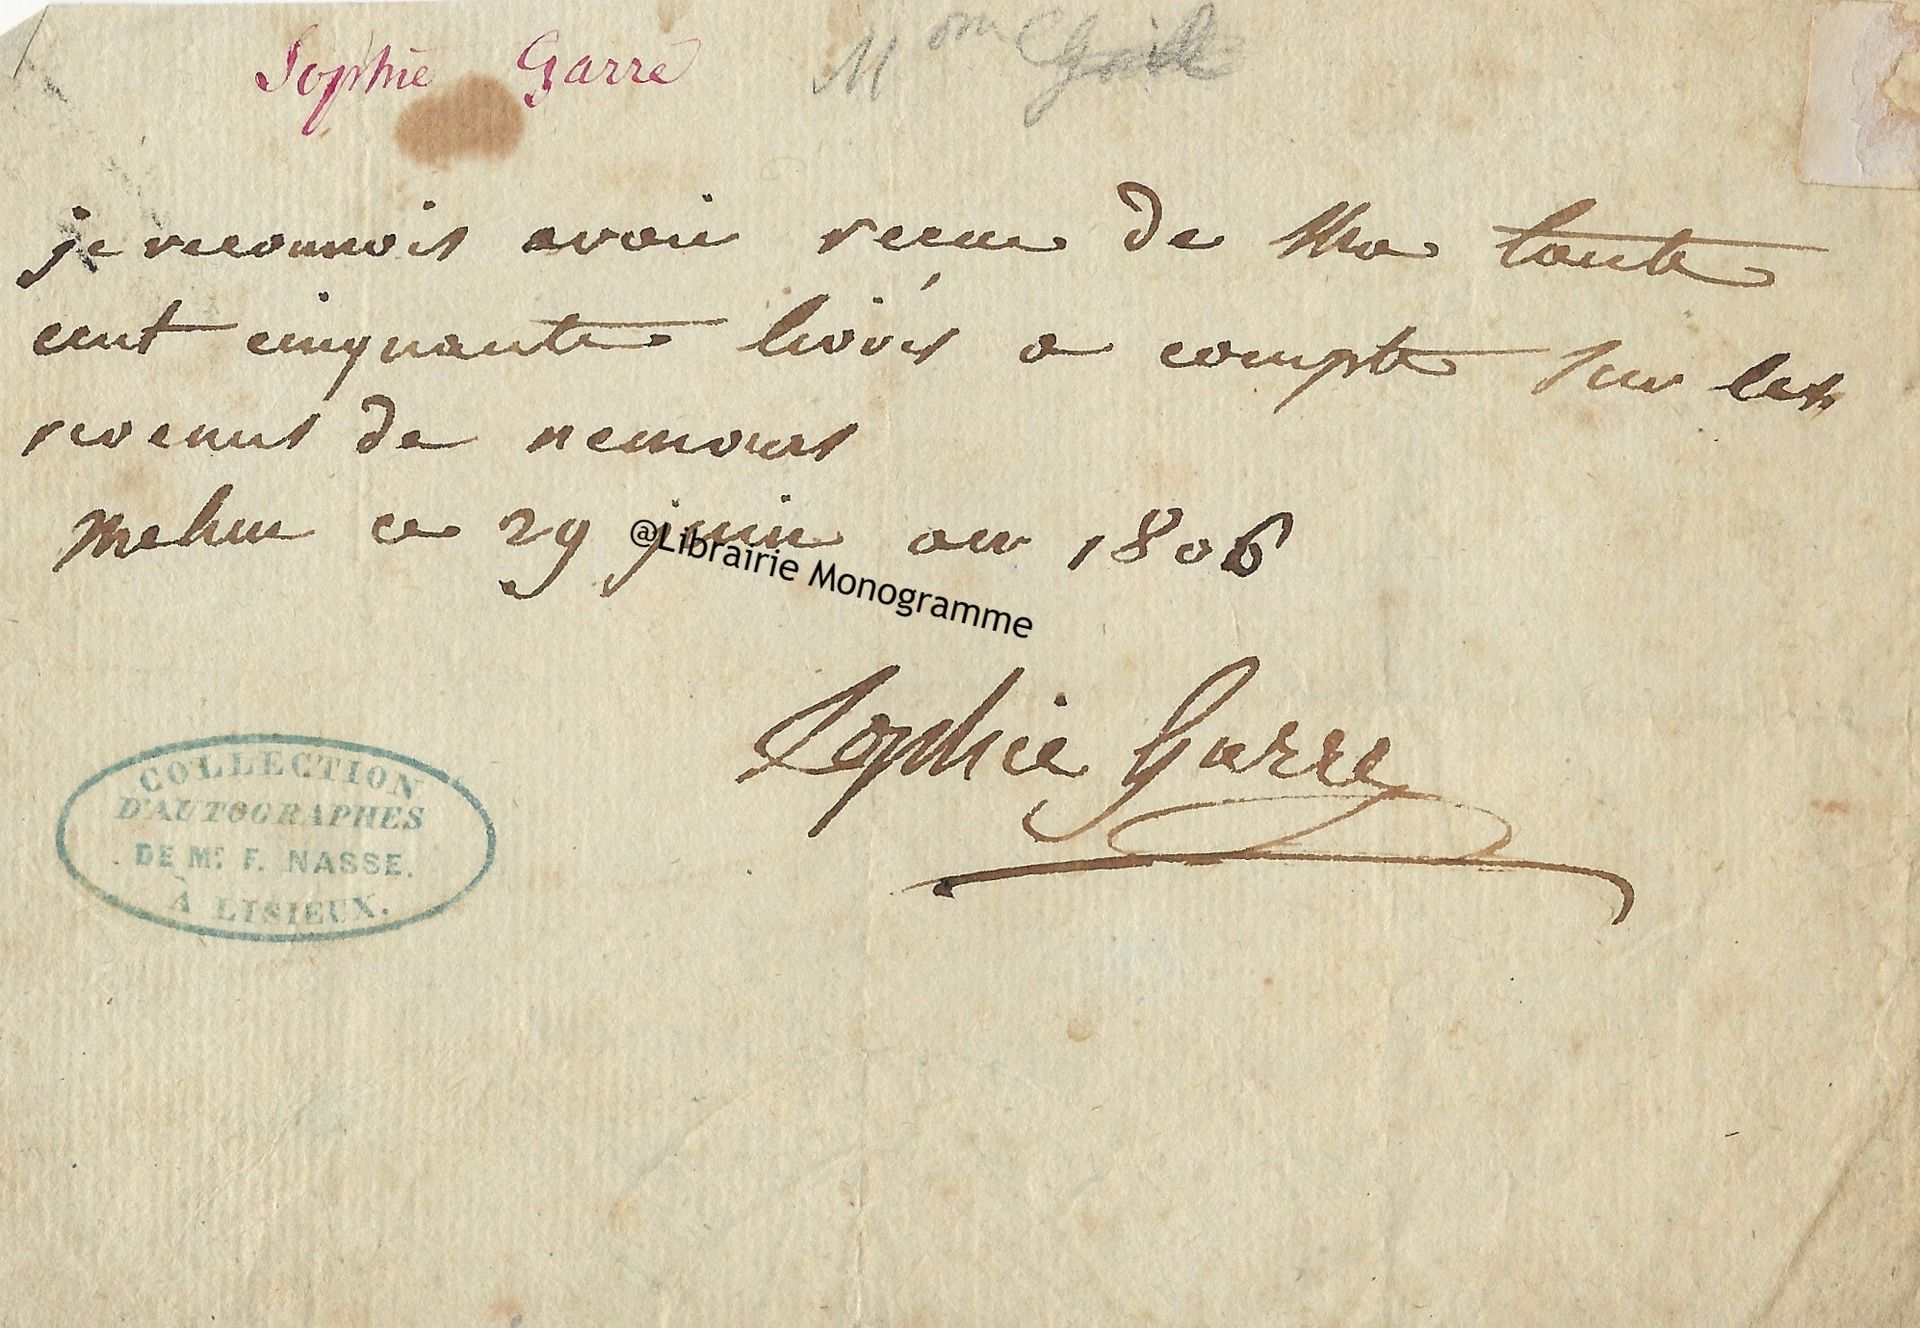 Sophie Garre Mom
je reconnois avoir recue de Ma tante
cent cinquante livres a compte sur les
revenus de nemours
Melun ce 29 juin an 1806
@Librairie Monogramme
Sophie Garre
COLLECTION
D'AUTOGRAPHES
DE Mr. F. NASSE.
À LISIEUX.